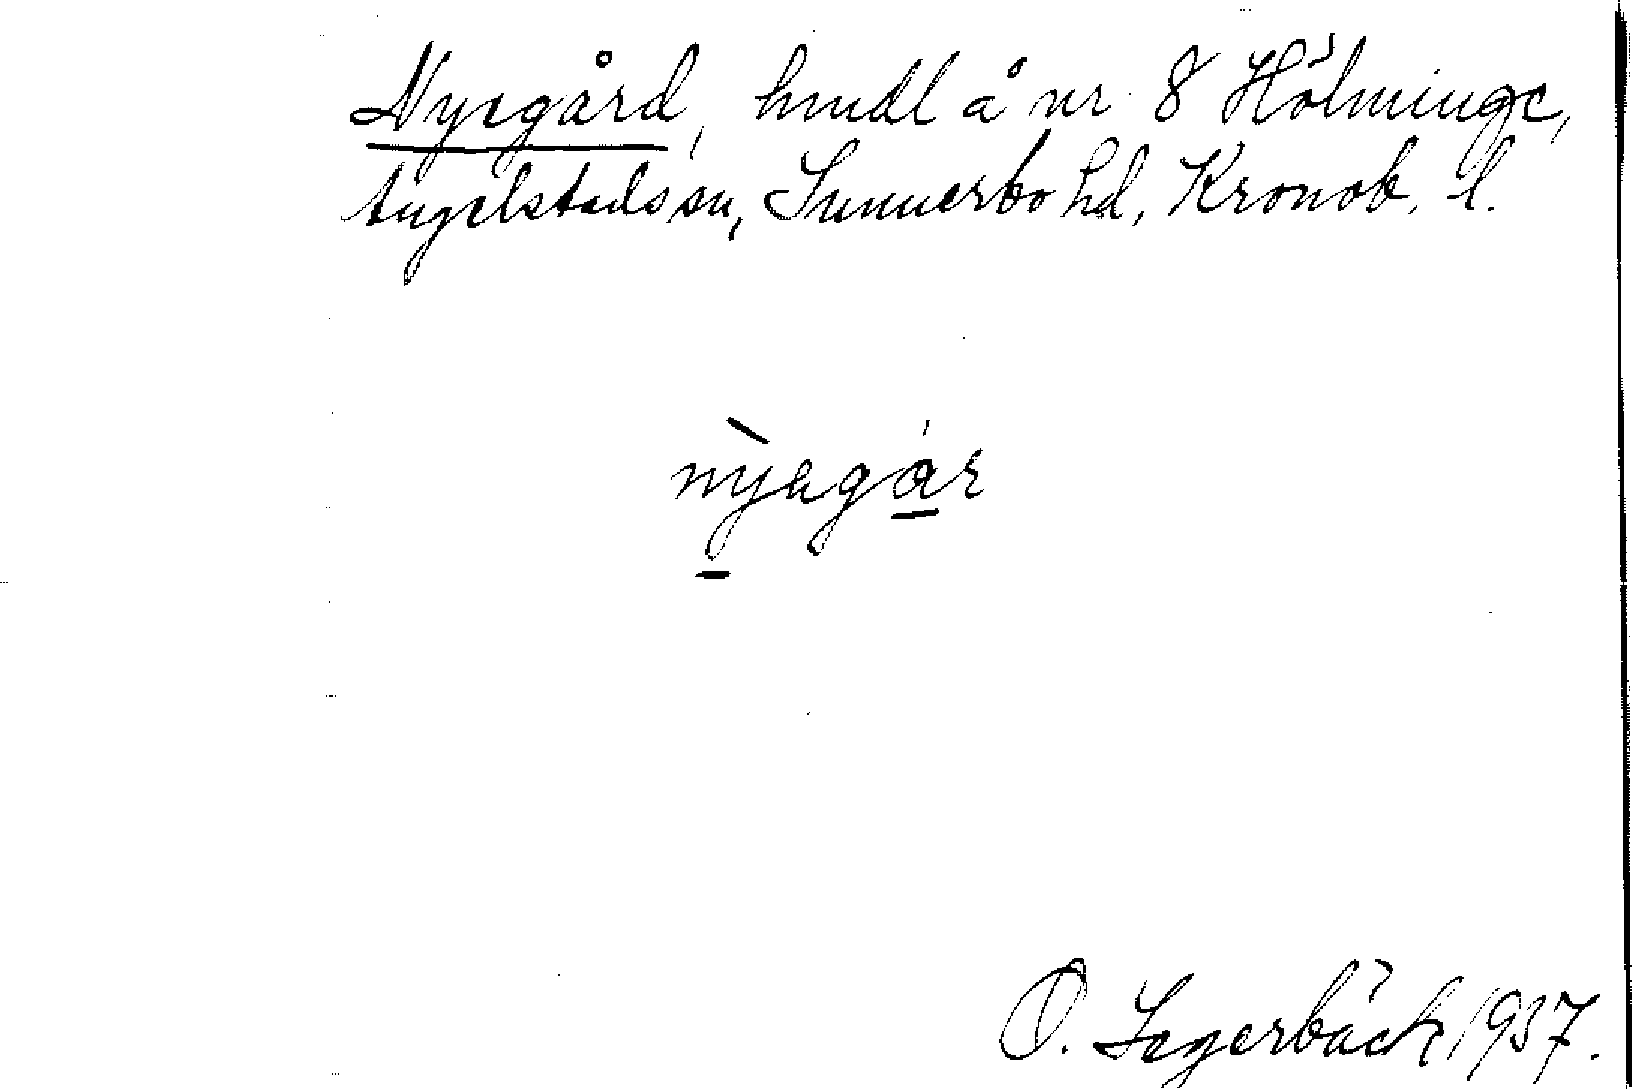 Nyegård, hmdl å nr 8 Hölminge,
Angelstads sn, Sunnerbo hd, Kronob. l.
nỳagár
O. Lagerbäck 1937.